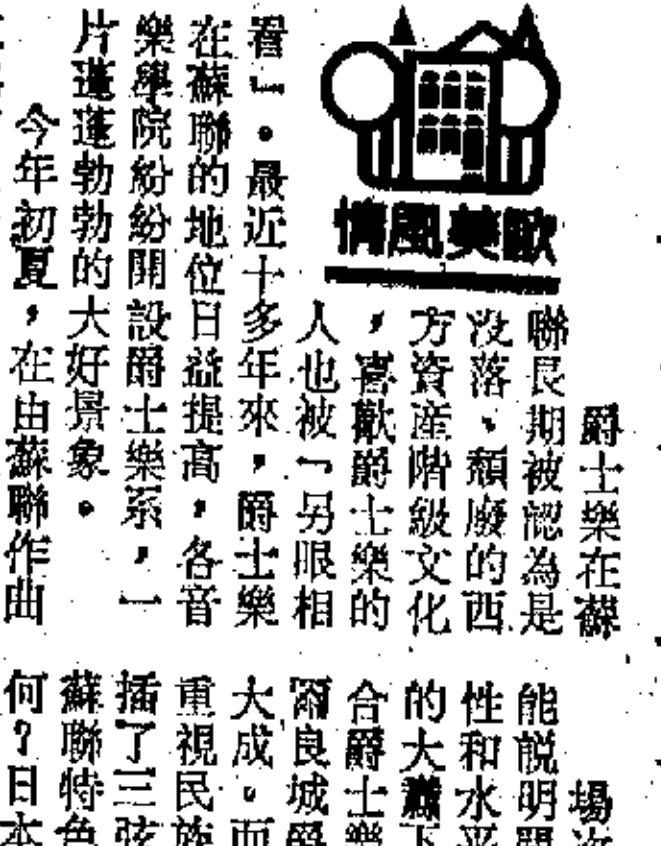 歐美風情
爵士樂在蘇
聯長期被認為是
没落、頹廢的西
方資産階級文化
，喜歡爵士樂的
人也被「另眼相
看」。最近十多年來，爵士樂
在蘇聯的地位日益提高，各音
樂學院紛紛開設爵士樂系，一
片蓬蓬勃勃的大好景象。
今年初夏，在由蘇聯作曲
場
能説明
性和水平
的大蕭下
合爵士樂
爾良城爵
大成。而
重視民族
插了三弦
蘇聯特色
何？日本